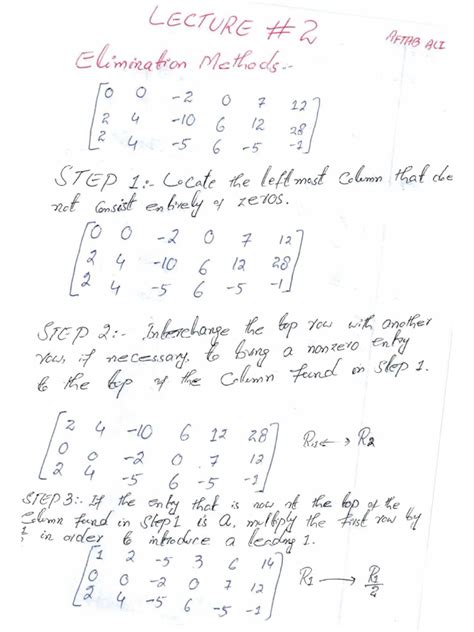 LECTURE #2
AFTAB ALI
Elimination Methods:-
[0 0 -2 0 7 12
2 4 -10 6 12 28
2 4 -5 6 -5 -1]
STEP 1:- Locate the left most Column that do
not Consist entirely of zeros.
[0 0 -2 0 7 12
2 4 -10 6 12 28
2 4 -5 6 -5 -1]
STEP 2:- Interchange the top row with another
row, if necessary, to bring a nonzero entry
to the top of the Column found in Step 1.
[2 4 -10 6 12 28
0 0 -2 0 7 12
2 4 -5 6 -5 -1] R1 ↔ R2
STEP 3:- If the entry that is now at the top of the
Column found in Step 1 is a, multiply the first row by
in order to introduce a leading 1.
[1 2 -5 3 6 14
0 0 -2 0 7 12
2 4 -5 6 -5 -1] R1 → R1/2